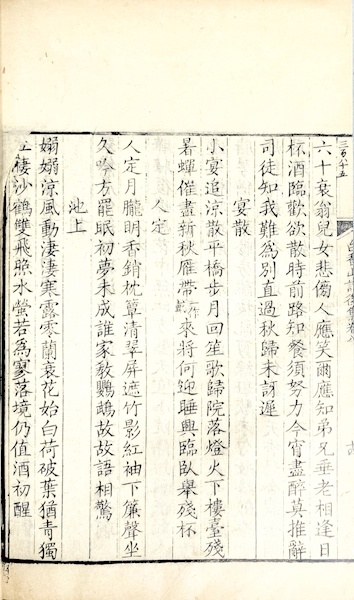 三百八十五
六十衰翁兒女悲傍人應笑爾應知弟兄垂老相逢日
杯酒臨歡欲散時前路知餐須努力今宵盡醉莫推辭
司徒知我難為別直過秋歸未訝遲
宴散
小宴追涼散平橋步月回笙歌歸院落燈火下樓臺殘
暑蟬催盡新秋雁帶一作來將何迎睡興臨臥舉殘杯
人定
人定月朧明香銷枕簟清翠屏遮竹影紅袖下簾聲坐
久吟方罷眠初夢未成誰家教鸚鵡故故語相驚
池上
嫋嫋涼風動淒淒寒露零蘭衰花始白荷破葉猶青獨
立棲沙鶴雙飛照水螢若為寥落境仍值酒初醒